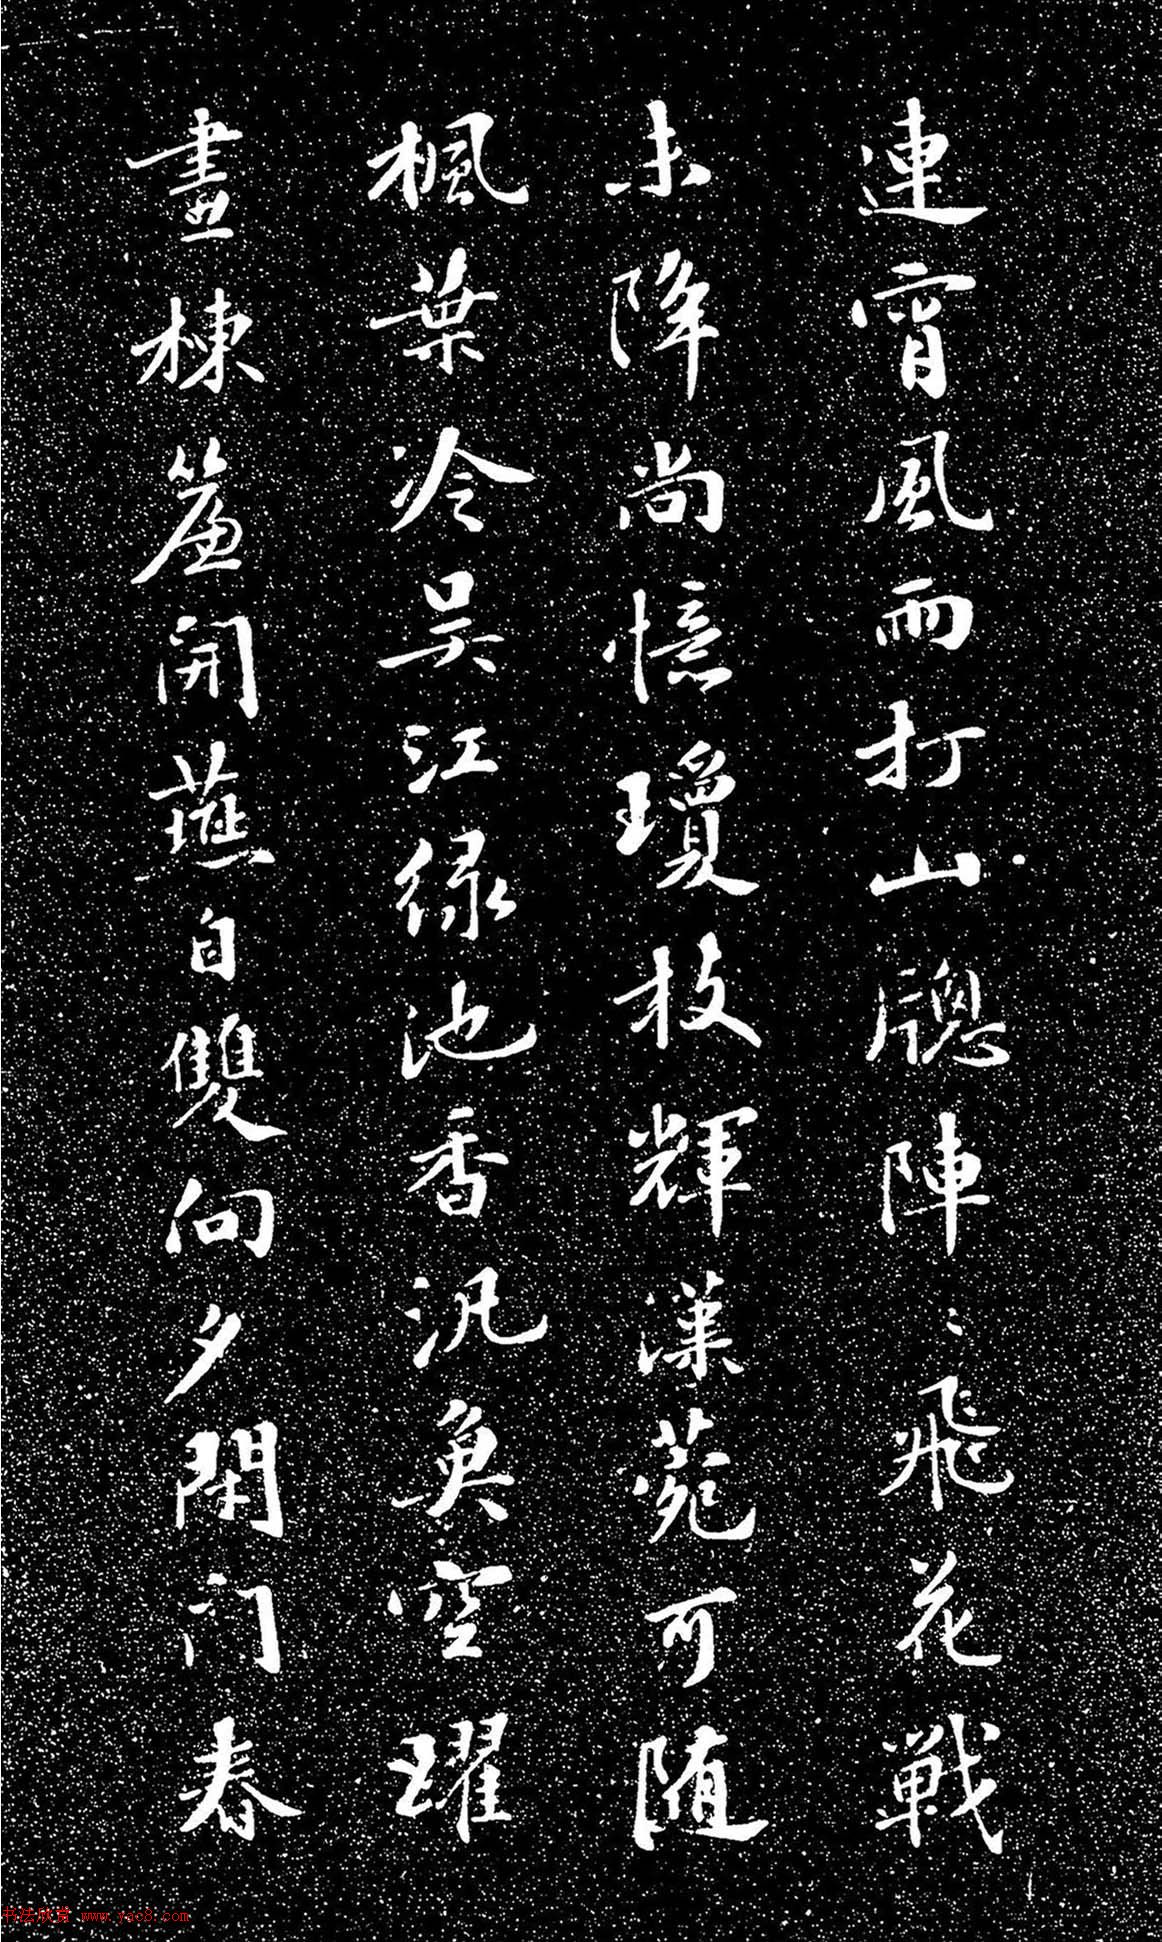 連宵風雨打山牕陣〻飛花戰
未降尚憶瓊枝輝漢苑可随
楓葉冷吴江緑池香汎魚空躍
畫棟簾開燕自雙向夕閑门春
书法欣赏 www.yac8.com